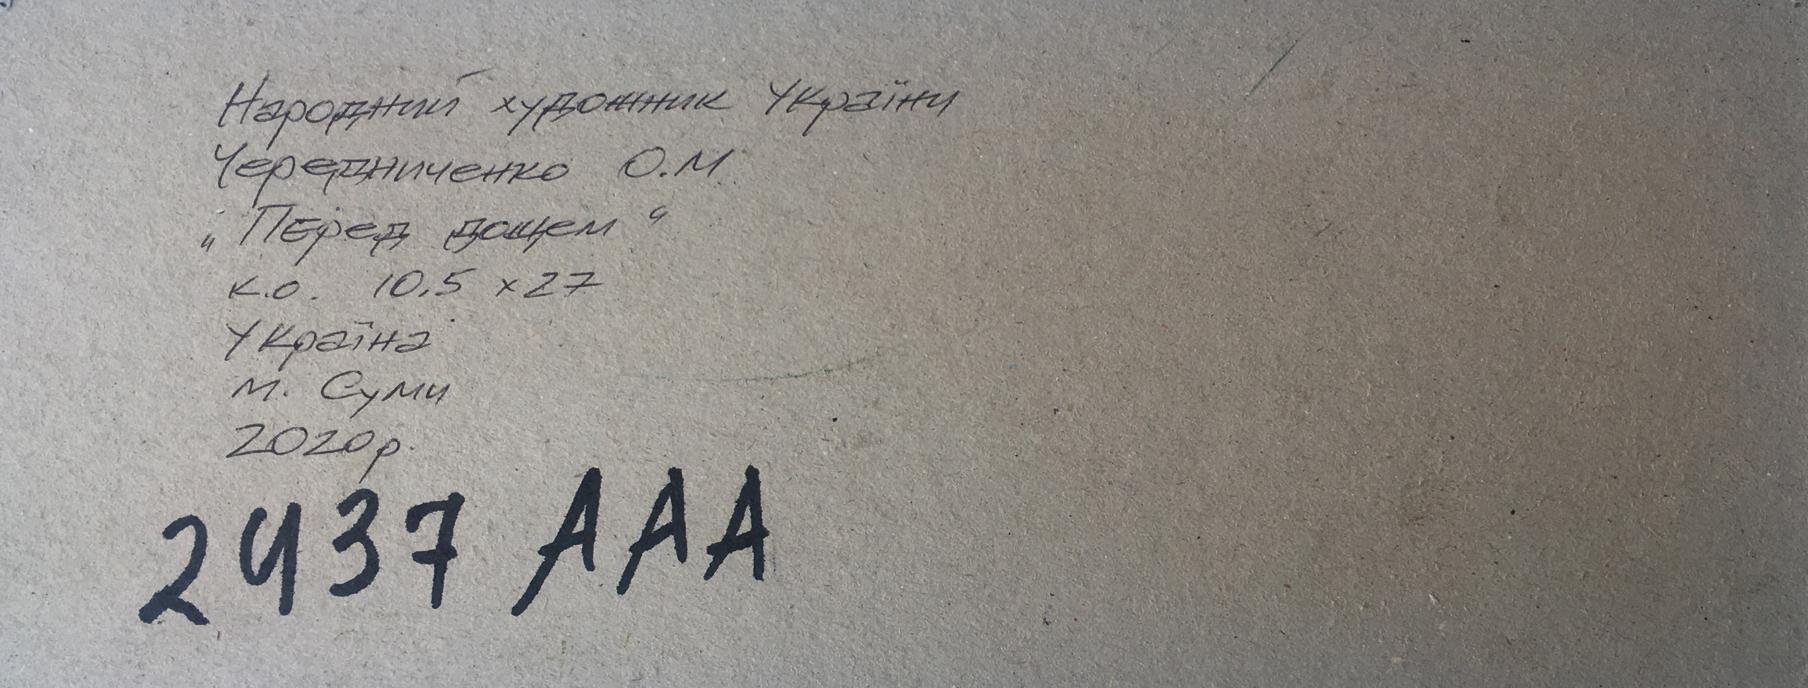 Народний художник Україну
Чередниченко О.М.
„Перед дощем“
к.о. 10.5 x 27
Україна
м. Суми
2020р.
2437 ААА